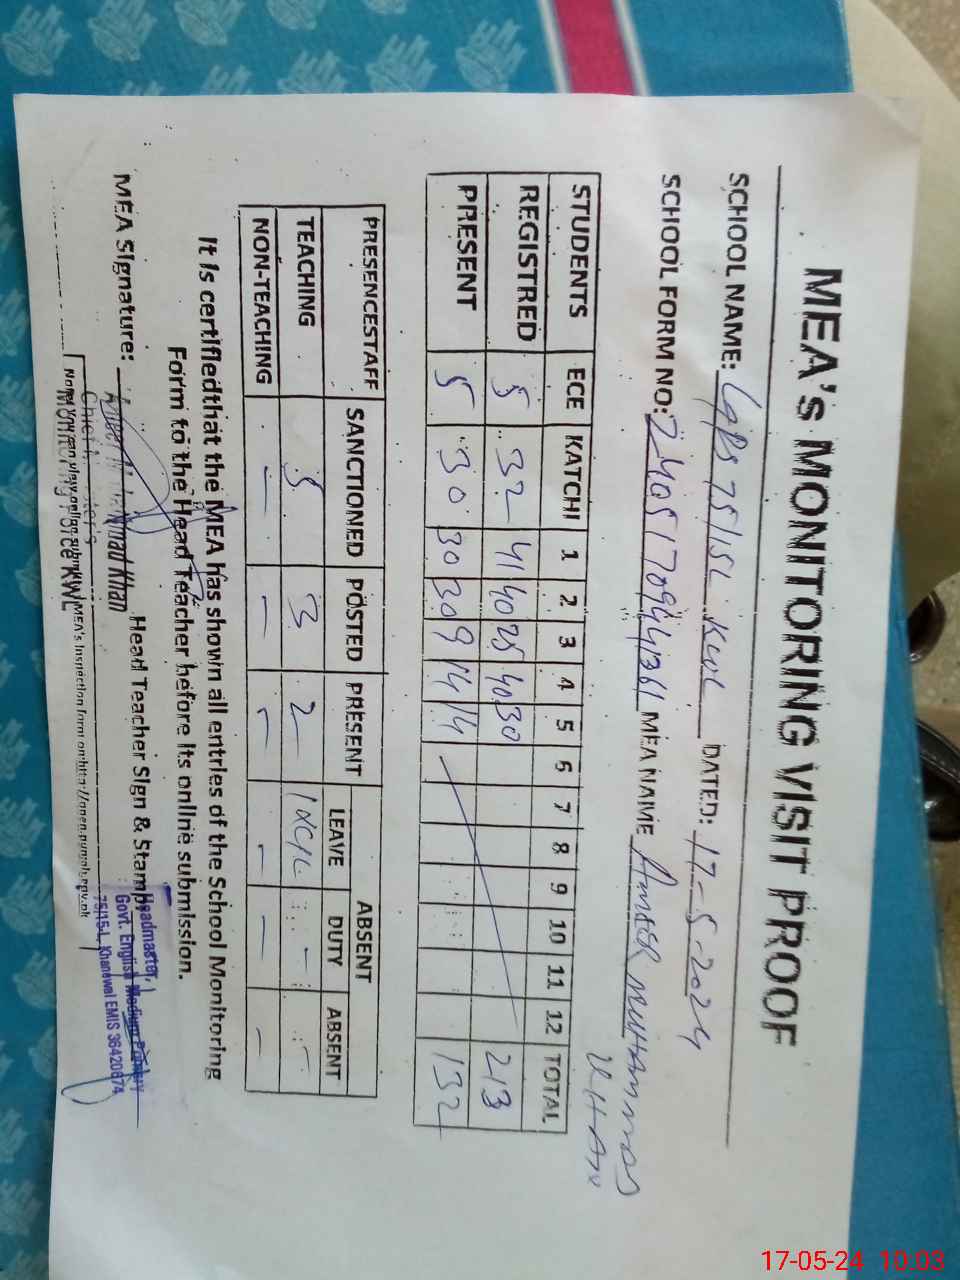 MEA's MONITORING VISIT PROOF
SCHOOL NAME: GPS 75/15L KWL DATED: 17-5-2024
SCHOOL FORM NO: MEA NAME AMEER MUHAMMAD KHAN
STUDENTS ECE KATCHI 1 2 3 4 5 6 7 8 9 10 11 12 TOTAL
REGISTRED 5 32 41 40 25 40 30 213
PRESENT 5 30 30 30 9 14 14 132
PRESENCESTAFF SANCTIONED POSTED PRESENT ABSENT
LEAVE DUTY ABSENT
TEACHING 5 3 2 - -
NON-TEACHING - - - - - -
It is certifiedthat the MEA has shown all entries of the School Monitoring
Form to the Head Teacher before its online submission.
MEA Signature: Head Teacher Sign & Stamp:
Muhammad Khan
Monitoring Force KWL
Note: You can view online submitted MEA's Inspection form on http://open.punjab.gov.pk
Headmaster,
Govt. English Medium Primary
75/15-L, Khanewal EMIS 36420674
17-05-24 10:03